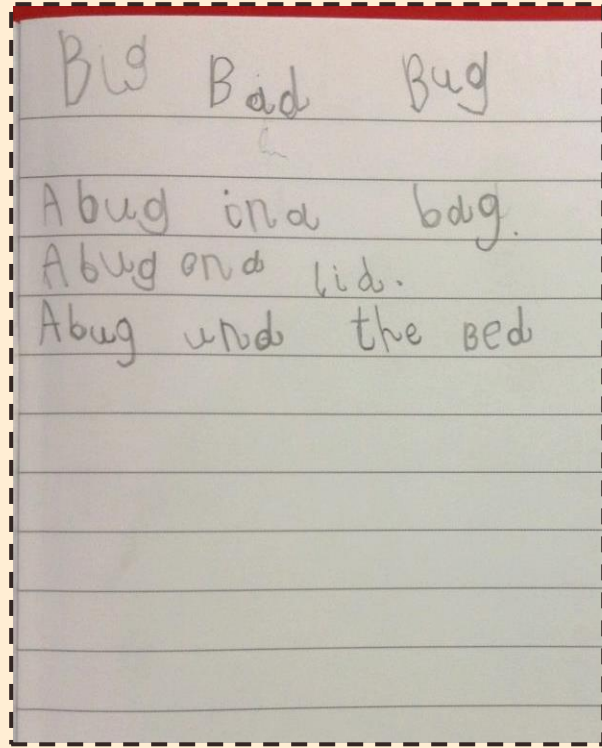 Big Bad Bug
A bug ina bag.
A bug ona lid.
A bug und the Bed